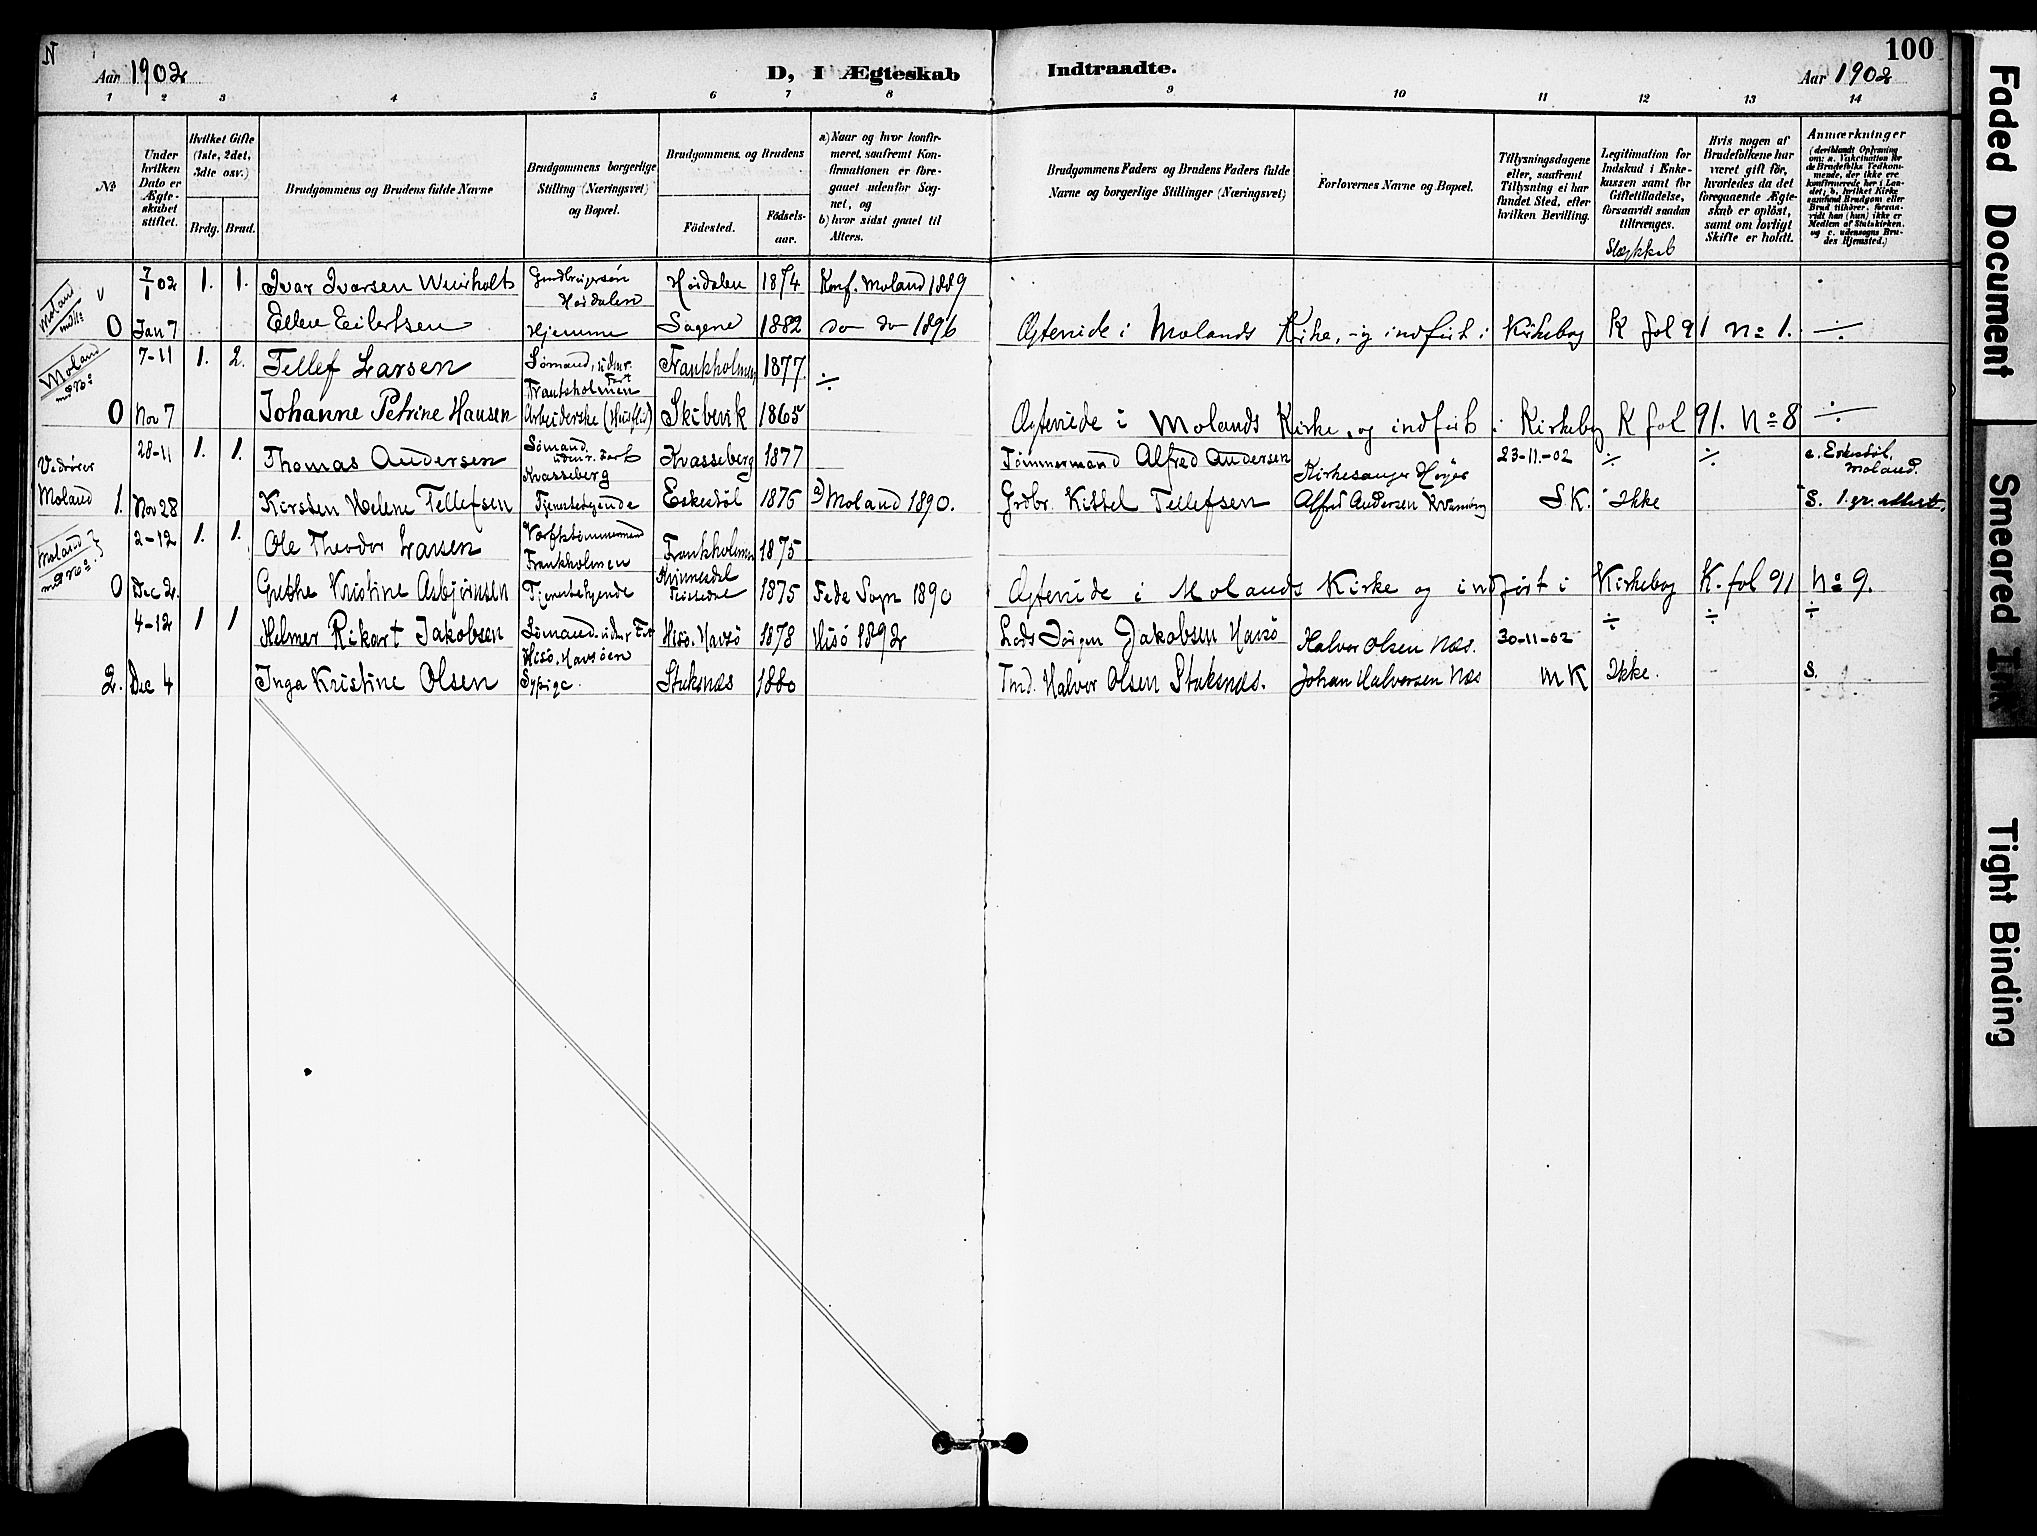 N
Aar 1902
D, I Ægteskab Indtraadte.
100
Aar 1902
1 2 3 4 5 6 7 8 9 10 11 12 13 14
No
Under hvilken Dato er Ægteskabet stiftet.
Hvilket Gifte (1ste, 2det, 3die osv.)
Brdg. Brud.
Brudgommens og Brudens fulde Navne
Brudgommens borgerlige Stilling (Næringsvei) og Bopæl.
Brudgommens og Brudens
Fødested.
Fødselsaar.
a) Naar og hvor konfirmeret, saafremt Konfirmationen er foregaaet udenfor Sognet, og
b) hvor sidst gaaet til Alters.
Brudgommens Faders og Brudens Faders fulde Navne og borgerlige Stillinger (Næringsvei)
Forlovernes Navne og Bopæl.
Tillysningsdagene eller, saafremt Tillysning ei har fundet Sted, efter hvilken Bevilling.
Legitimation for Indskud i Enkekassen samt for Giftetilladelse, forsaavidt saadan tiltrænges.
Hvis nogen af Brudefolkene har været gift før, hvorledes da det foregaaende Ægteskab er opløst, samt om lovligt Skifte er holdt.
Anmærkninger
(deriblandt Oplysning om: a. Vakcination for de Brudefolks Vedkommende, der ikke ere konfirmerede her i Landet, b. hvilket Kirkesamfund Brudgom eller Brud tilhører, forsaavidt han (hun) ikke er Medlem af Statskirken, og c. udensogns Brudes Hjemsted.)
Moland 7/1 02 1. 1. Ivar Ivarsen Gundbrugersøn Høidalen Høidalen 1874 Konf. Moland 1889
0 Jan 7 Ellen Eilertsen Hjemme Sagene 1882 do do 1896 Ægteviede i Molands Kirke, og indført i Kirkebog K fol 91 No 1. ÷
Moland 7-11 1. 2. Tellef Larsen Sømand, udenr. Fart Frankholmen 1877. ÷
0 Nov 7 Johanne Petrine Hansen Arbeiderske (Husflid) Skibevik 1865 Ægteviede i Molands Kirke, og indført i Kirkebog K fol 91. No 8 ÷
Vedrører 28-11 1. 1. Thomas Andersen Sømand udenr. Fart Kvasseberg Kvasseberg 1877 Tømmermand Alfred Andersen Kirkesanger Høyer 23-11-02 ÷ ÷ c. Eskedøl, Moland.
Moland 1. Nov 28 Kirsten Helene Tellefsen Tjenestepige Eskedøl 1875 a) Moland 1890. Grdbr. Kittel Tellefsen Alfred Andersen S K. Ikke S. 1 gr. attest.
Moland 2-12 1. 1. Ole Theodor Larsen Frankholmen Frankholmen 1875
0 Dec 2. Grethe Kristine Asbjørnsen 1875 Fede Sogn 1890 Ægteviede i Molands Kirke og indført i Kirkebog K. fol 91 No 9.
4-12 1 1 Helmer Rikart Jakobsen Sømand. udnr Fart Hisø. Havsøen Hisø. Havsø 1878 Hisø 1892 Lods Jørgen Jakobsen Havsø Halvor Olsen Næs. 30-11-02 ÷ ÷ ÷
2. Dec 4 Inga Kristine Olsen Sypige. Stuksnæs 1880 Tmd. Halvor Olsen Stuksnæs. Johan Halvorsen Næs M K Ikke. S.
Faded Document
Smeared Ink
Tight Binding